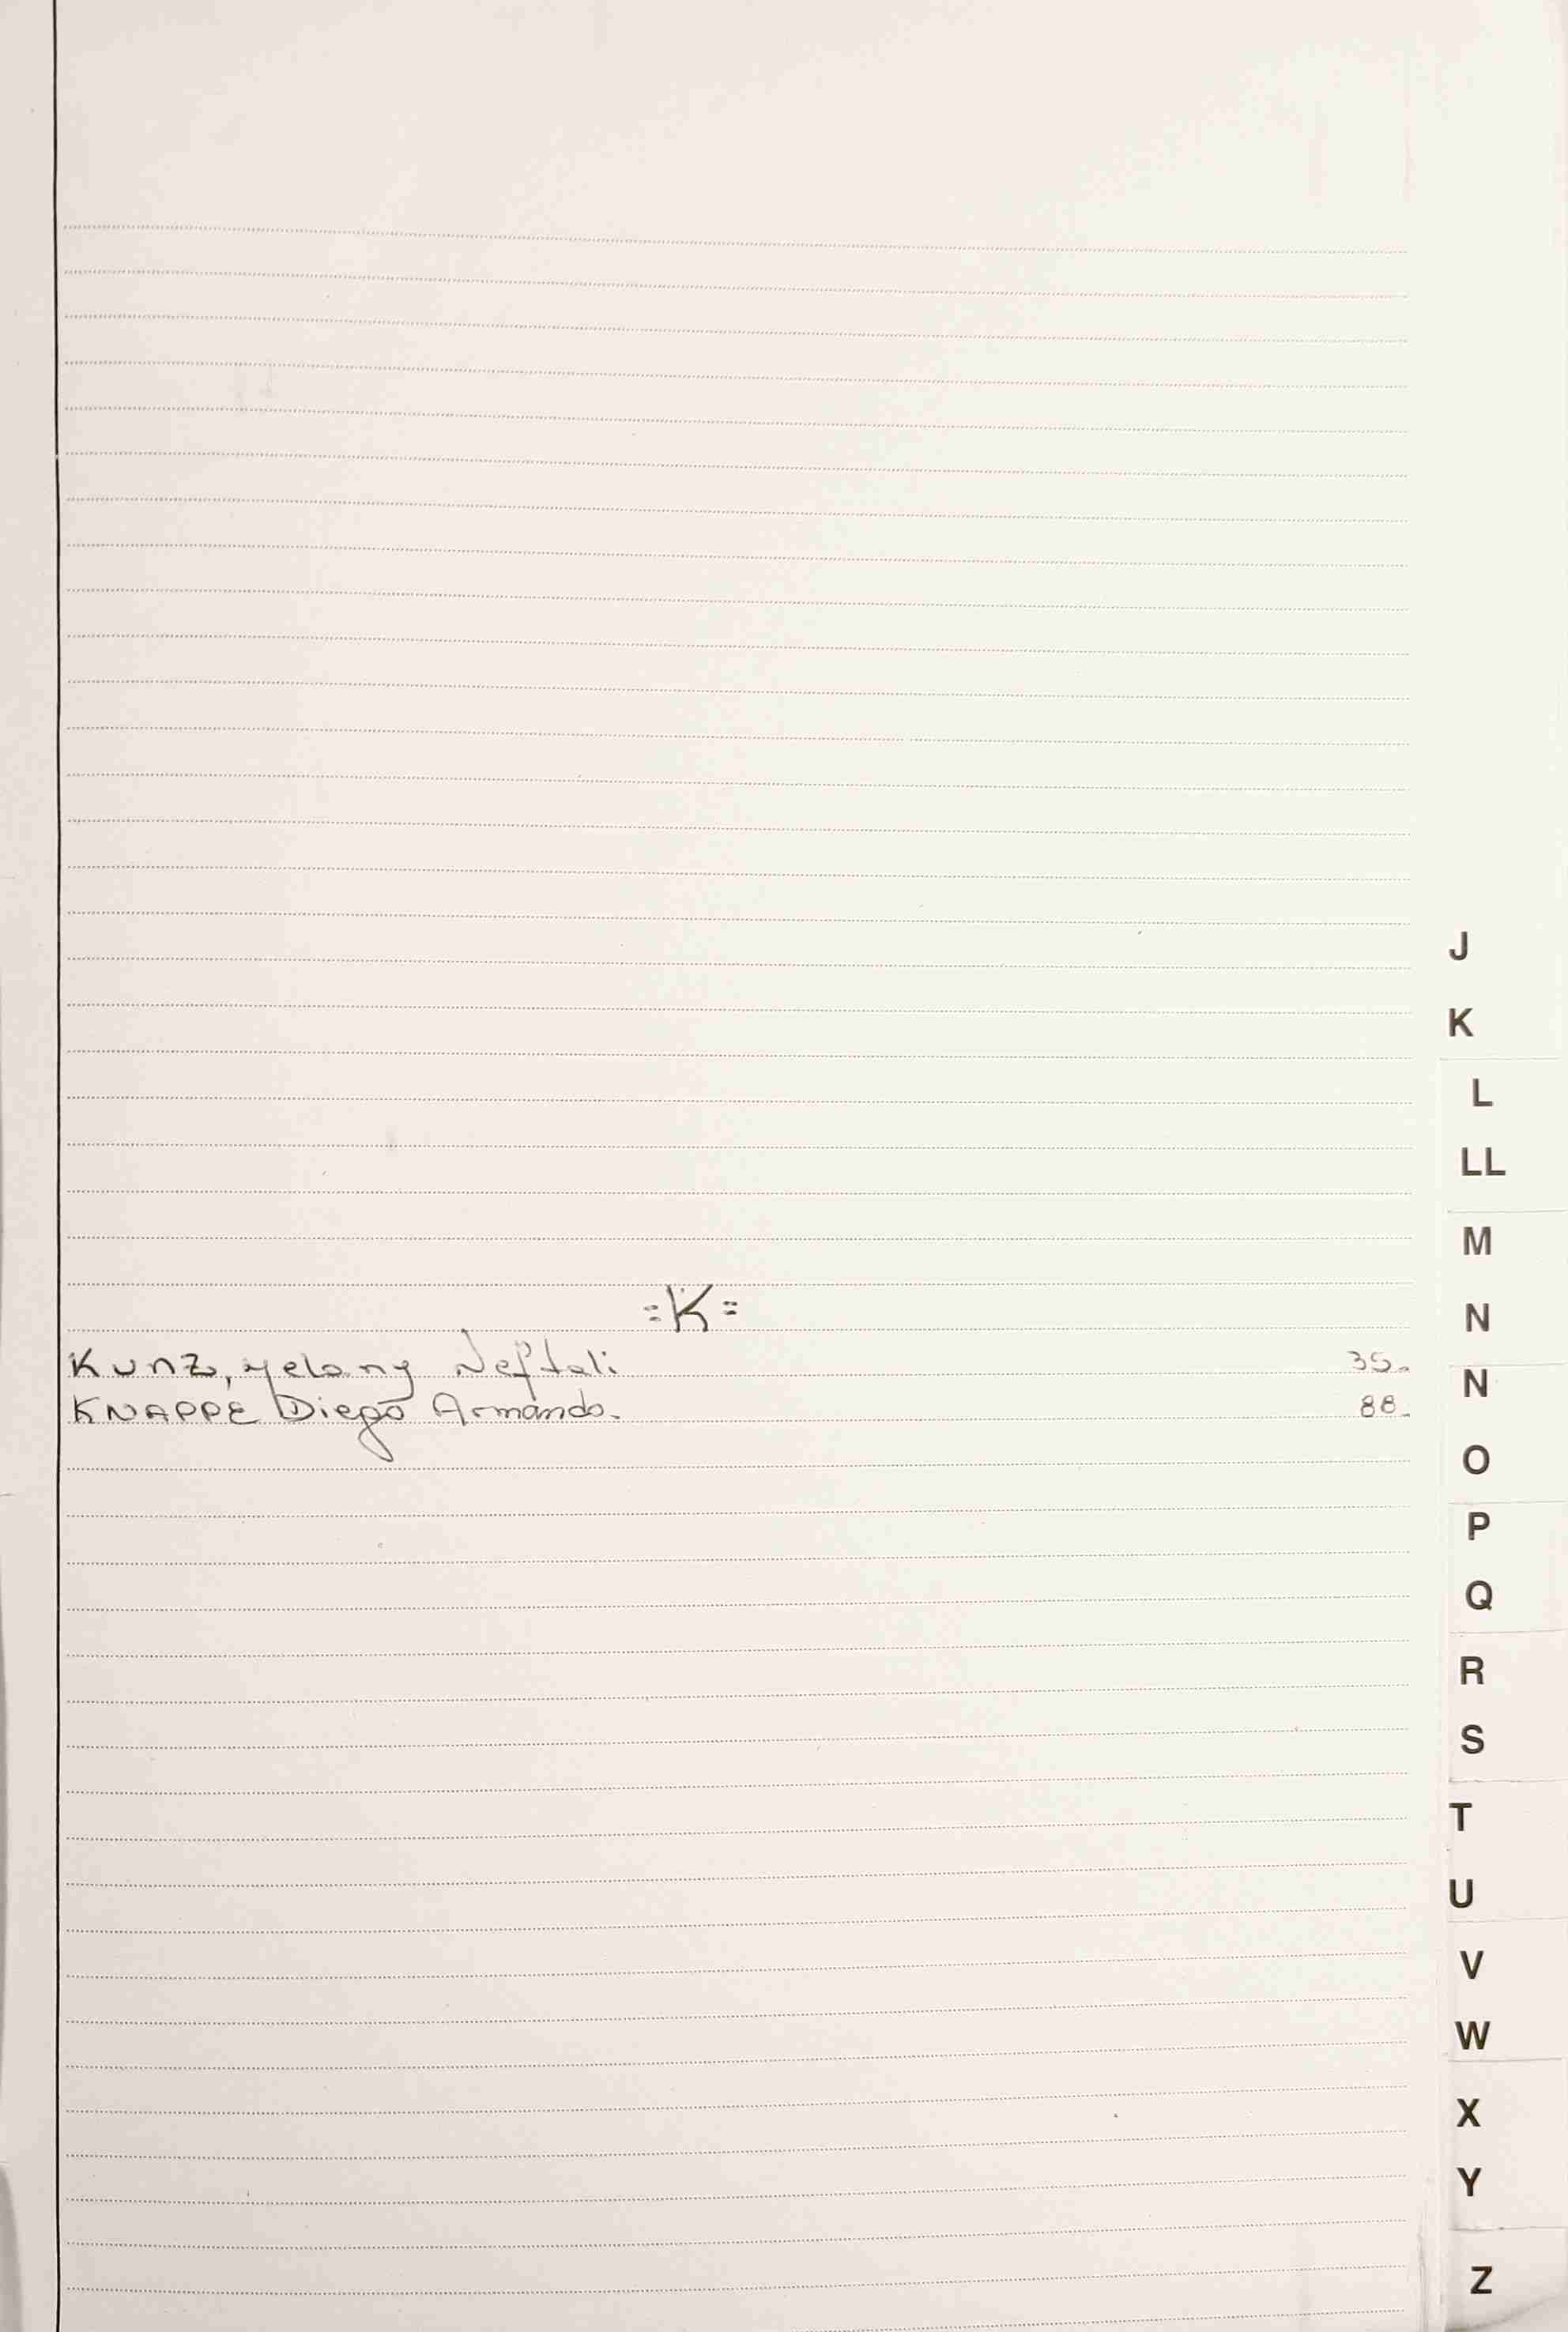 J
K
L
LL
M
N
=K=
Kunz, yelany Neftali 35.
N
KNAPPE Diego Armando. 88.
O
P
Q
R
S
T
U
V
W
X
Y
Z